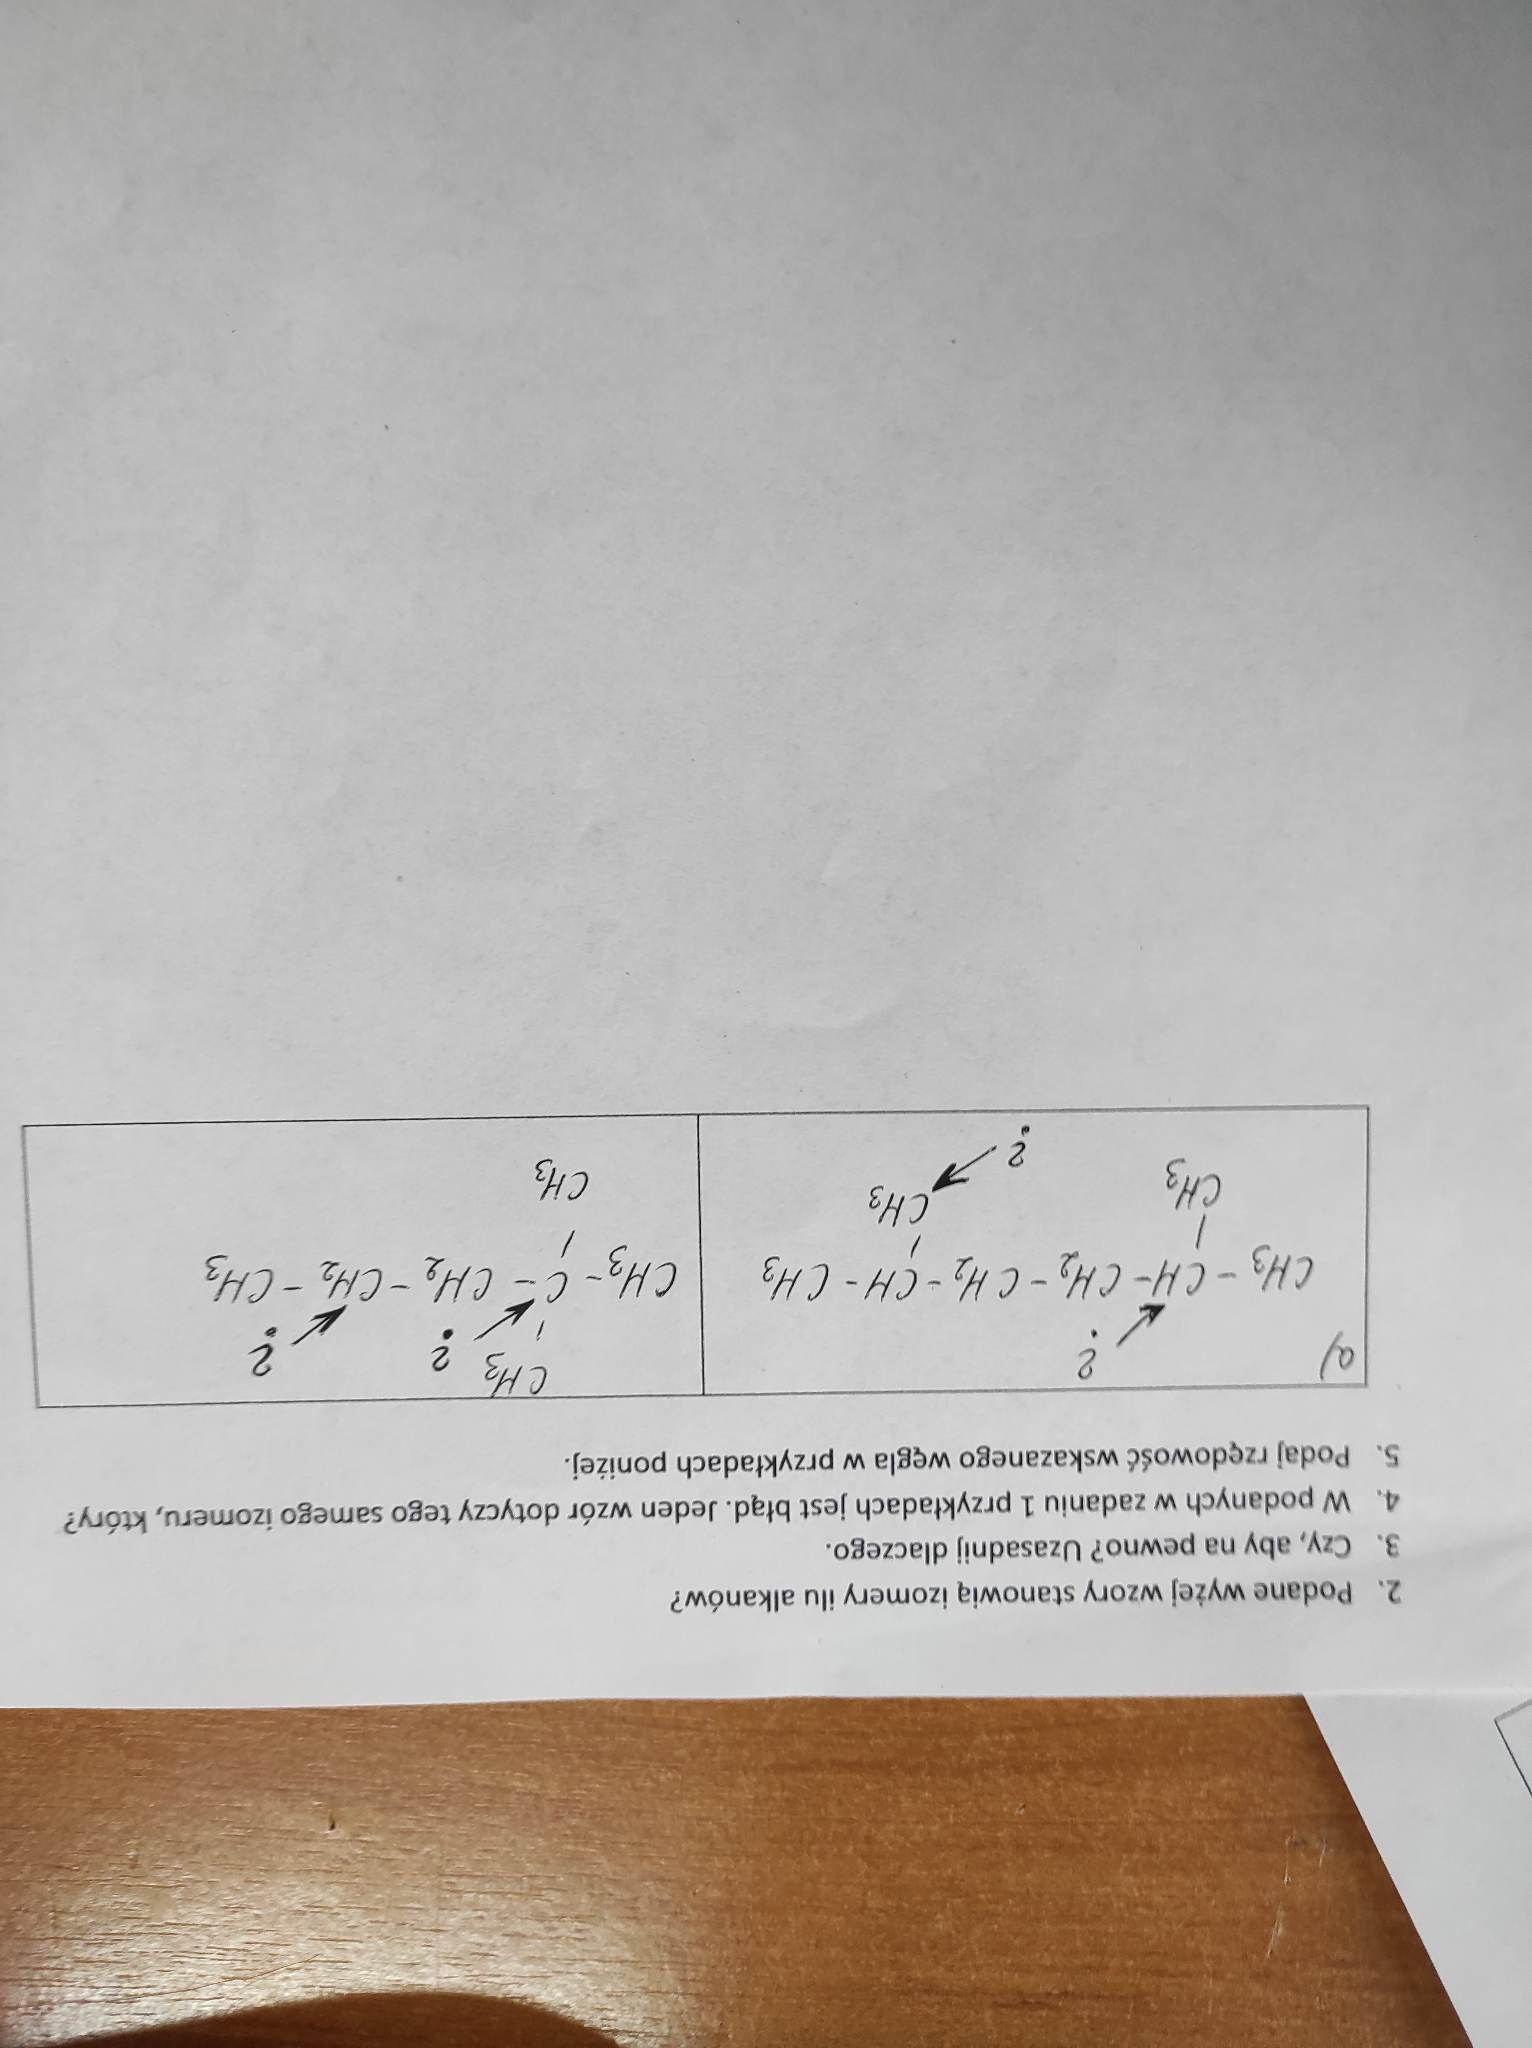 2. Podane wyżej wzory stanowią izomery ilu alkanów?
3. Czy, aby na pewno? Uzasadnij dlaczego.
4. W podanych w zadaniu 1 przykładach jest błąd. Jeden wzór dotyczy tego samego izomeru, który?
5. Podaj rzędowość wskazanego węgla w przykładach poniżej.
a) ?
CH3 - CH - CH2 - CH2 - CH - CH3
CH3 CH3
?
CH3 ? ?
CH3 - C - CH2 - CH2 - CH3
CH3